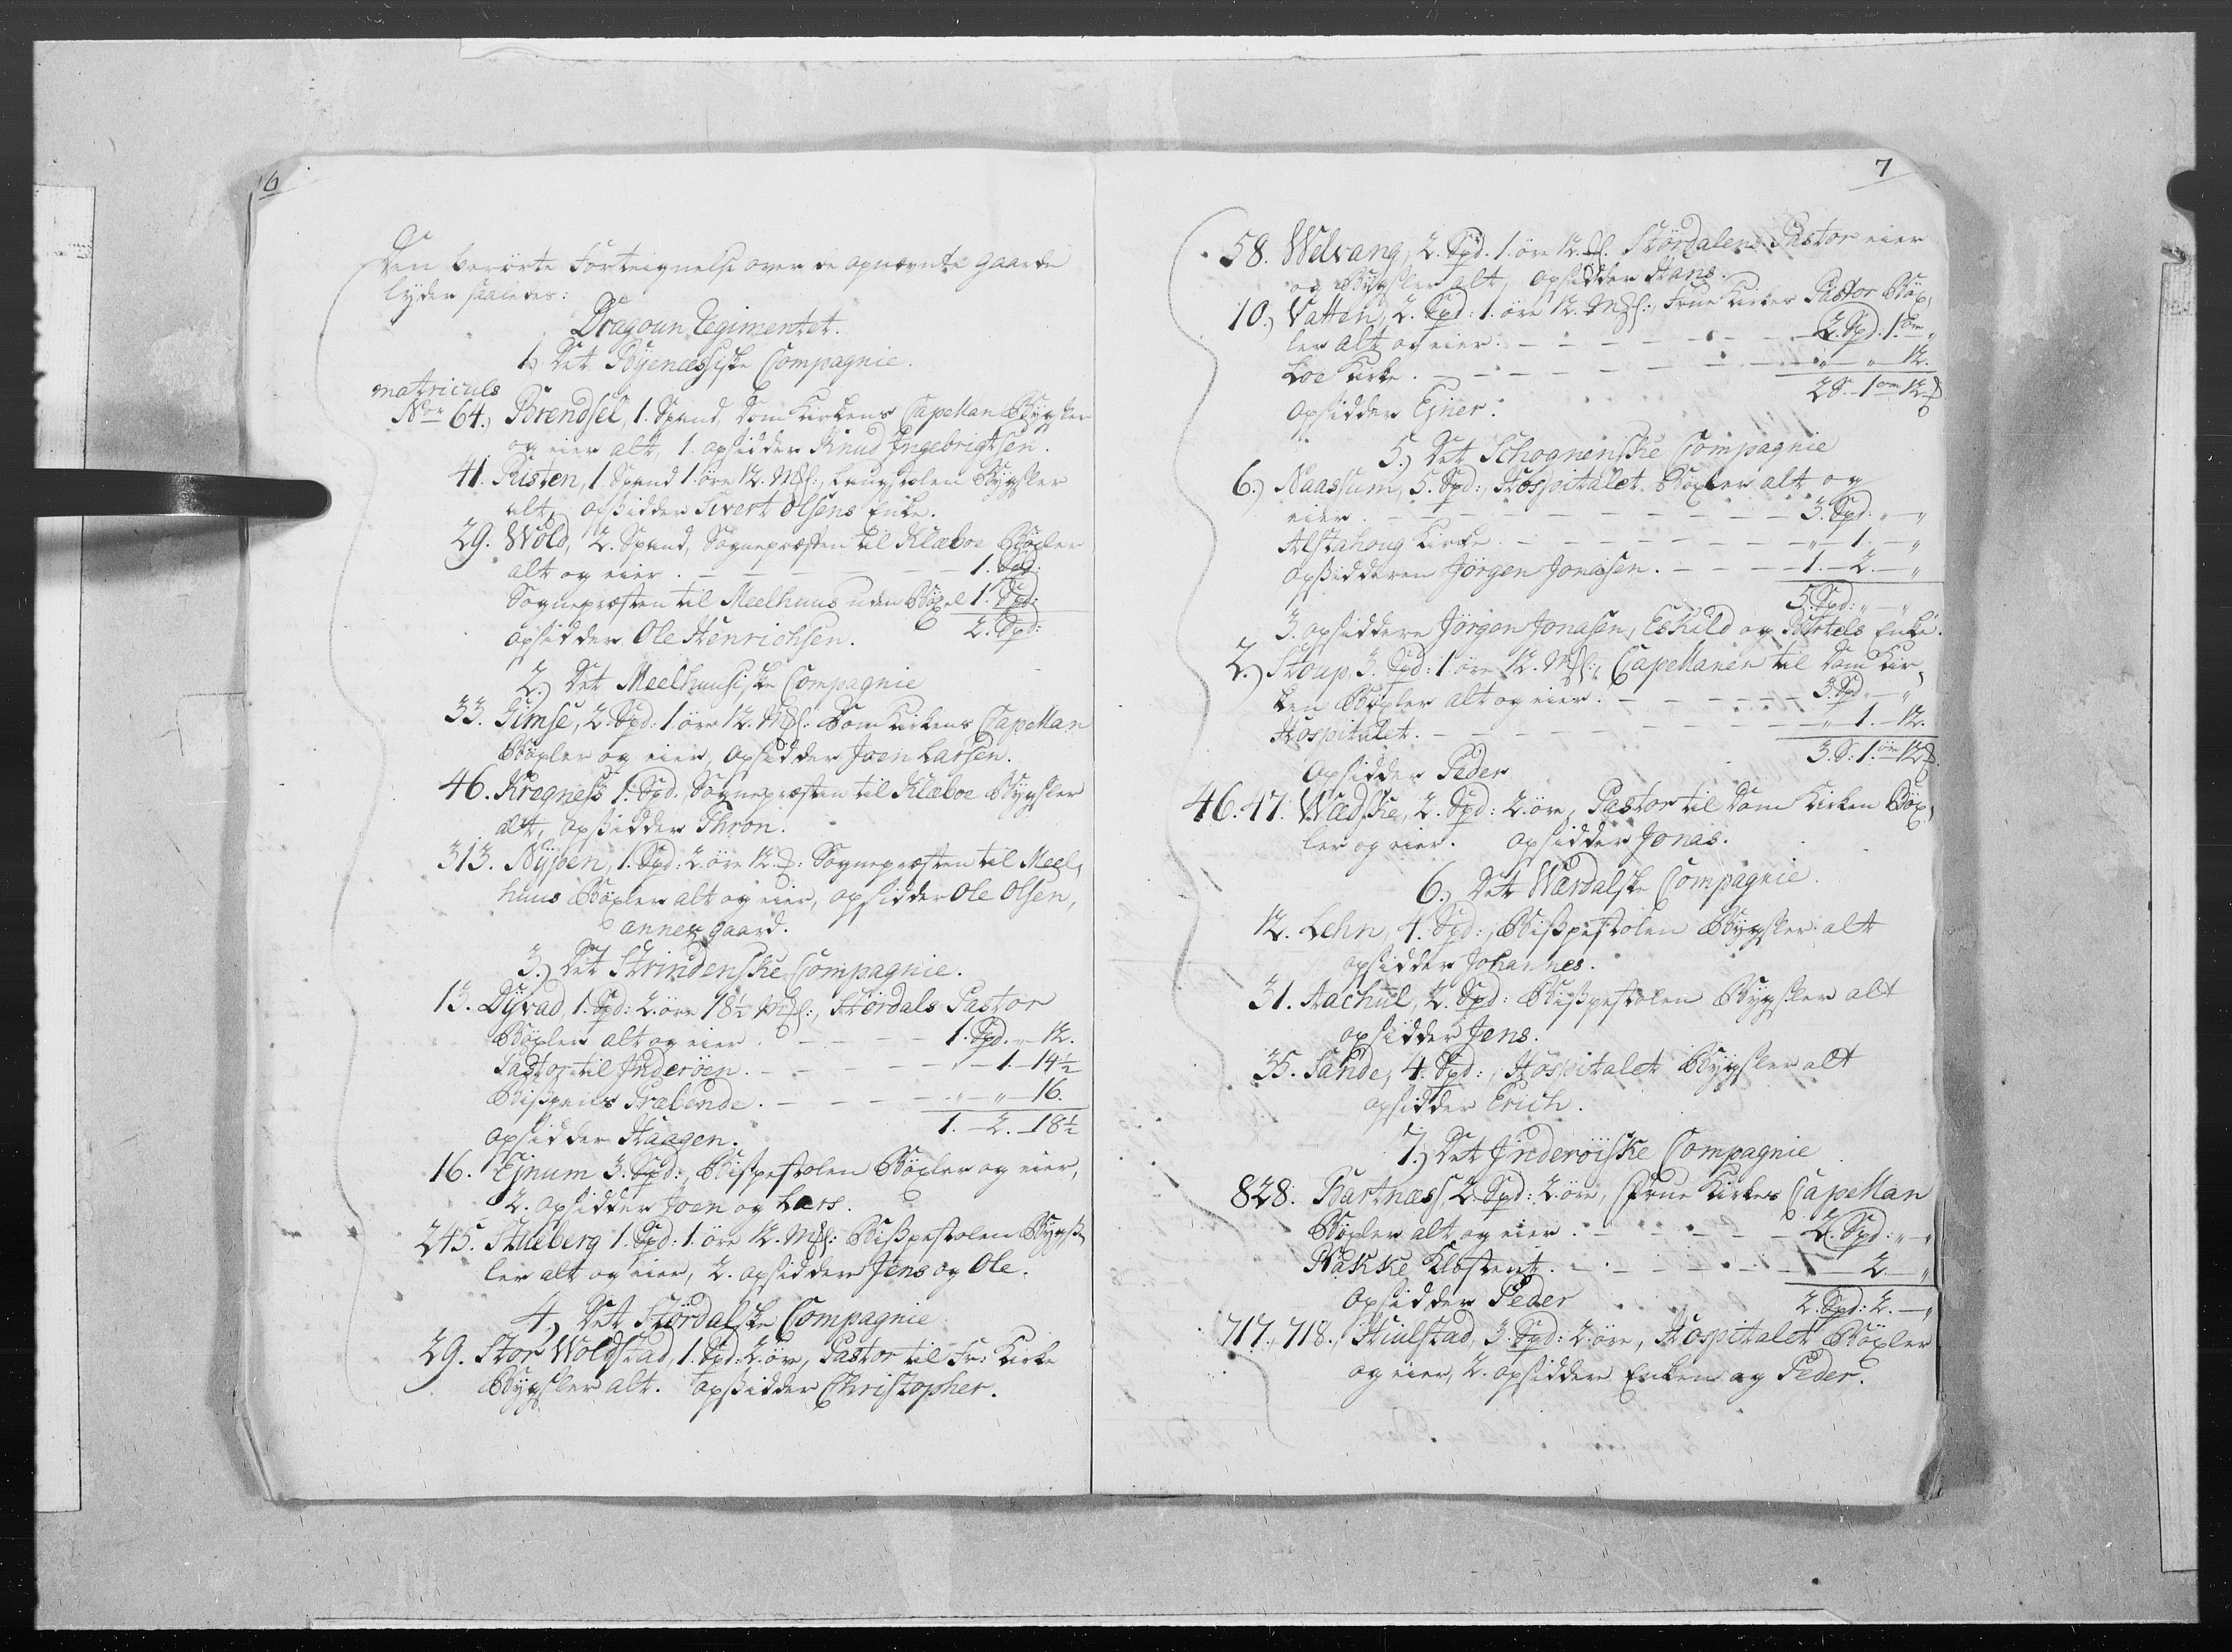 6
Den berörte Forteignelse over de opnævnte gaarde
lyder saaledes:
Dragoun Regimentet.
1.) Det Byenæssiske Compagnie.
matriculs
Nor 64.) Brendsel, 1. Spand, Dom Kirkens Capellan Bygsler
og eier alt, 1. opsidder Knud Ingebrigtsen.
41. Risten, 1. Spand 1. öre 12. Mkl:, Laugstolen Bygsler
alt, opsidder Sivert Olsens Enke.
29. Wold, 2. Spand, Sognepræsten til Klæboe Böxler
alt og eier. — — — — — 1. Spd:
Sognepræsten til Meelhuus uden Böxel 1. Spd:
opsidder Ole Henrichsen. 2. Spd:
2.) Det Meelhuusiske Compagnie
33. Gimse, 2. Spd: 1. öre 12. Mkl: Dom Kirkens Capellan
Böxler og eier, opsidder Joen Larsen.
46. Kregness 1. Spd., Sognepræsten til Klæboe Bygsler
alt, opsidder Thron.
313. Nypen, 1. Spd: 2. öre 12. : Sognepræsten til Meel,
huus Böxler alt og eier, opsidder Ole Olsen,
annex gaard.
3.) Det Strindenske Compagnie.
13. Dyvad, 1. Spd: 2. öre 18½ Mkl:, Stördals Pastor
Böxler alt og eier. — — — 1. Spd. „ 12.
Pastor til Inderöen. — — — — „ — 1. — 14½
Bispens Præbende. — — — — „ „ — 16.
opsidder Haagen. 1. — 2. — 18½
16. Ejnum 3. Spd:, Bispestolen Böxler og eier,
2. opsidder Joen og Lars.
245. Stueberg 1. Spd: 1. öre 12. Mkl: Bispestolen Bygs,
ler alt og eier, 2. opsidder Jens og Ole.
4.) Det Stördalske Compagnie
29. Stor Woldstad, 1. Spd: 2. öre, Pastor til Fr: Kirke
Bygsler alt. opsidder Christopher.
7
58. Welvang, 2. Spd. 1. öre 12. Stördalens Pastor eier
og Bygsler alt, opsidder Hans.
10.) Vatten, 2. Spd: 1. öre 12. Mkl:, Frue Kirkes Pastor Böx,
ler alt og eier. — — — — — 2. Spd. 1. öre „
Loe Kirke. — — — — — „ „ 12.
Opsidder Ejner. 2 S. 1 öre 12
5.) Det Schognenske Compagnie
6.) Naassum, 5. Spd:, Hospitalet Böxler alt og
eier. — — — — — 3. Spd: „ — „
Alstahoug Kirke. — — — — — „ — 1. — „
opsidderen Jörgen Jonasen. — — — 1. — 2. — „
5. Spd: „ — „
3. opsiddere Jörgen Jonasen, Eskild og Bertels Enke.
2.) Stoup, 3. Spd: 1 öre 12. Mkl:, Capellanen til Dom Kir,
ken Böxler alt og eier. — — — — 3. Spd „ — „
Hospitalet. — — — — — „ 1. — 12.
Opsidder Peder 3. S: 1. öre 12
46. 47. Wædske, 2. Spd: 2. öre, Pastor til Dom Kirken Böx,
ler og eier. opsidder Jonas.
6.) Det Wærdalske Compagnie.
12. Lehn, 4. Spd:, Bispestolen Bygsler alt
opsidder Johannes.
31. Hachul, 2. Spd: Bispestolen Bygsler alt
opsidder Jens.
35. Sande, 4. Spd:, Hospitalet Bygsler alt
opsidder Erich.
7.) Det Inderöiske Compagnie
828. Bartnæss 2. Spd: 2. öre, Frue Kirkes Capellan
Böxler alt og eier. — — — — 2. Spd: „ — „
Bakke Klostent. — — — — — 2. — „
Opsidder Peder 2. Spd: 2. — „
717., 718., Huulstad, 3. Spd: 2. öre, Hospitalet Böxler
og eier, 2. opsidder Enken og Peder.